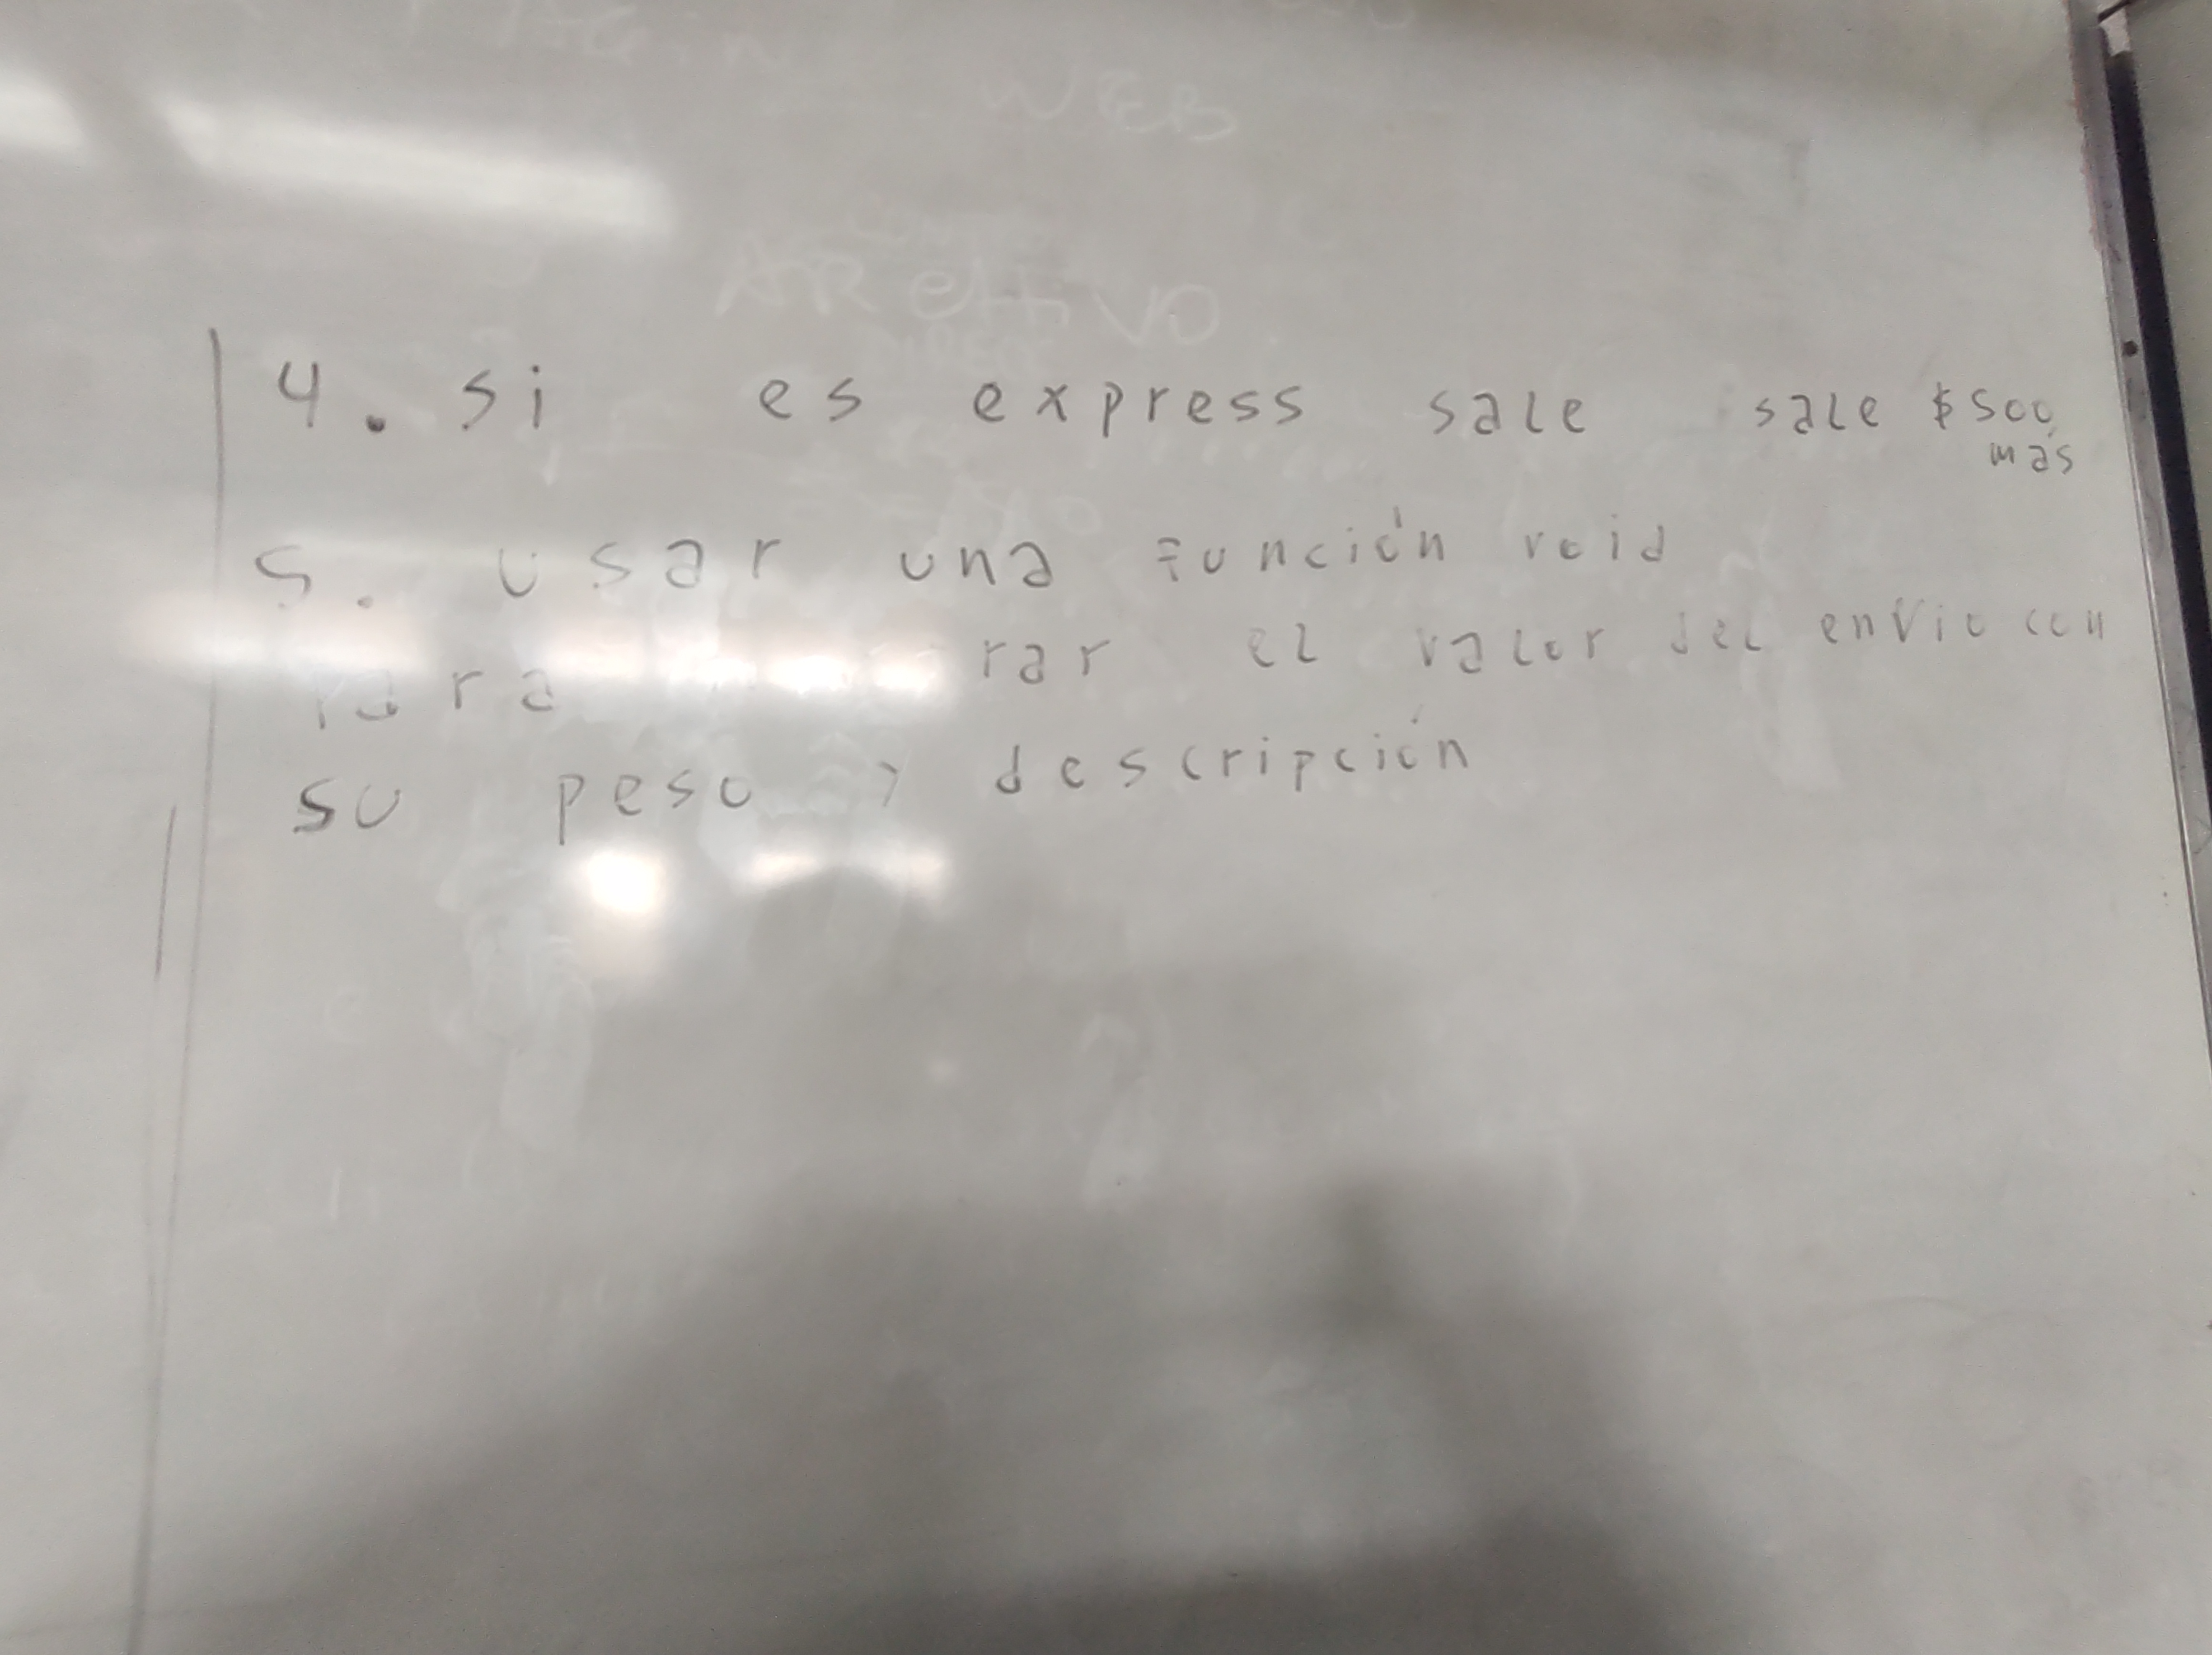 WEB
4. si es express sale sale $500
más
5. usar una función void
para rar el valor del envio con
su peso y descripción